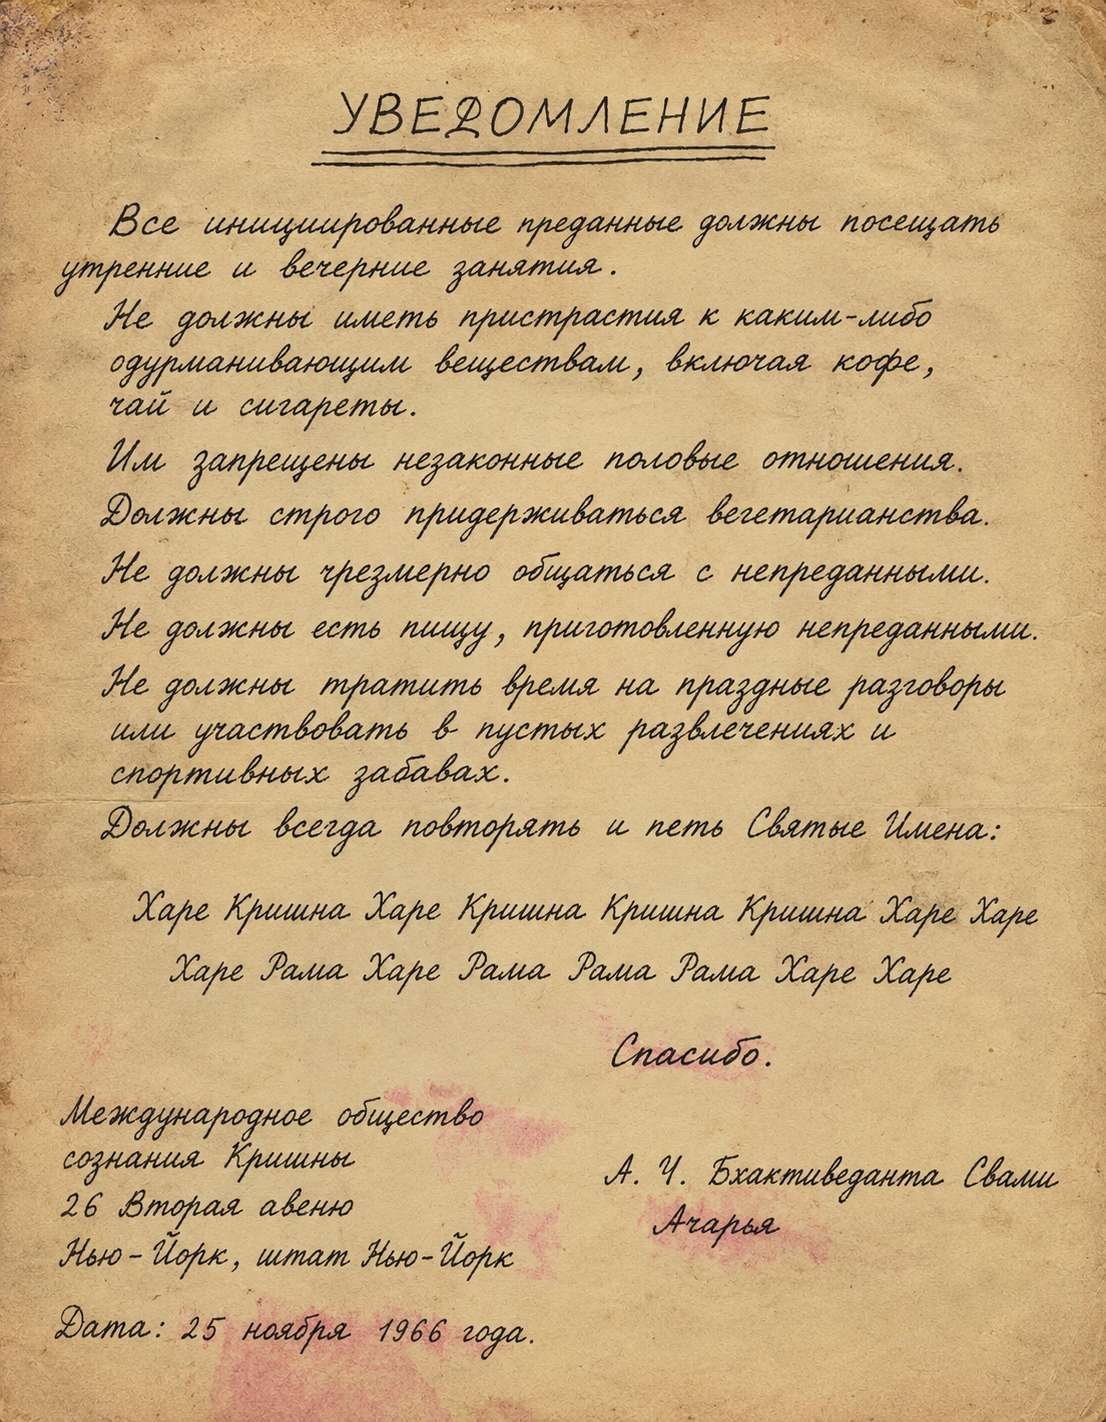 УВЕДОМЛЕНИЕ
Все инициированные преданные должны посещать
утренние и вечерние занятия.
Не должны иметь пристрастия к каким-либо
одурманивающим веществам, включая кофе,
чай и сигареты.
Им запрещены незаконные половые отношения.
Должны строго придерживаться вегетарианства.
Не должны чрезмерно общаться с непреданными.
Не должны есть пищу, приготовленную непреданными.
Не должны тратить время на праздные разговоры
или участвовать в пустых развлечениях и
спортивных забавах.
Должны всегда повторять и петь Святые Имена:
Харе Кришна Харе Кришна Кришна Кришна Харе Харе
Харе Рама Харе Рама Рама Рама Харе Харе
Спасибо.
Международное общество
сознания Кришны
26 Вторая авеню
Нью-Йорк, штат Нью-Йорк
А. Ч. Бхактиведанта Свами
Ачарья
Дата: 25 ноября 1966 года.